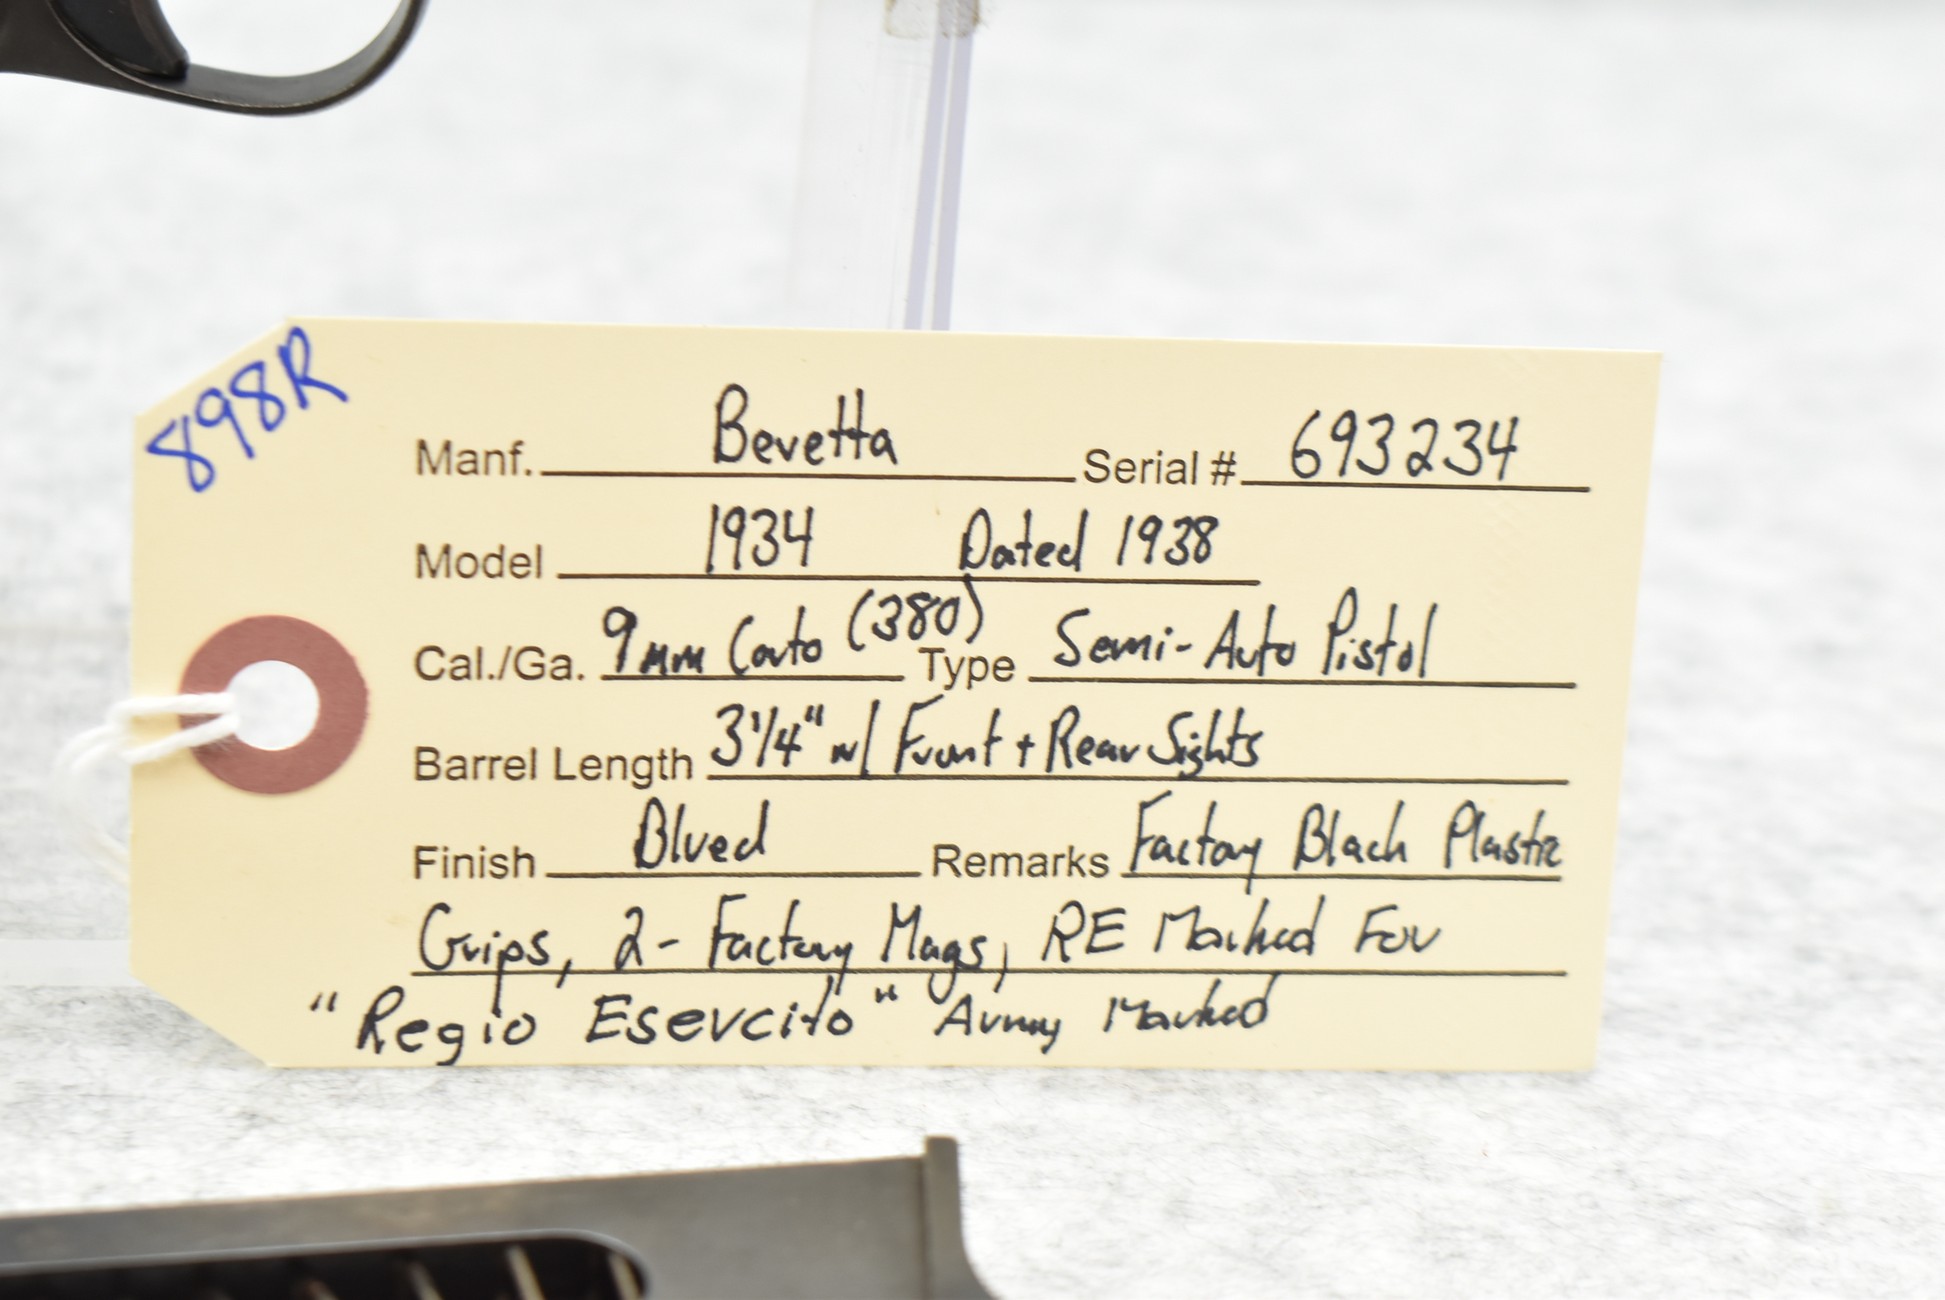 898R
Manf. Beretta Serial # 693234
Model 1934 Dated 1938
Cal./Ga. 9mm Corto (380) Type Semi-Auto Pistol
Barrel Length 3 1/4" w/ Front + Rear Sights
Finish Blued Remarks Factory Black Plastic
Grips, 2- Factory Mags, RE Marked For
"Regio Esercito" Army Marked